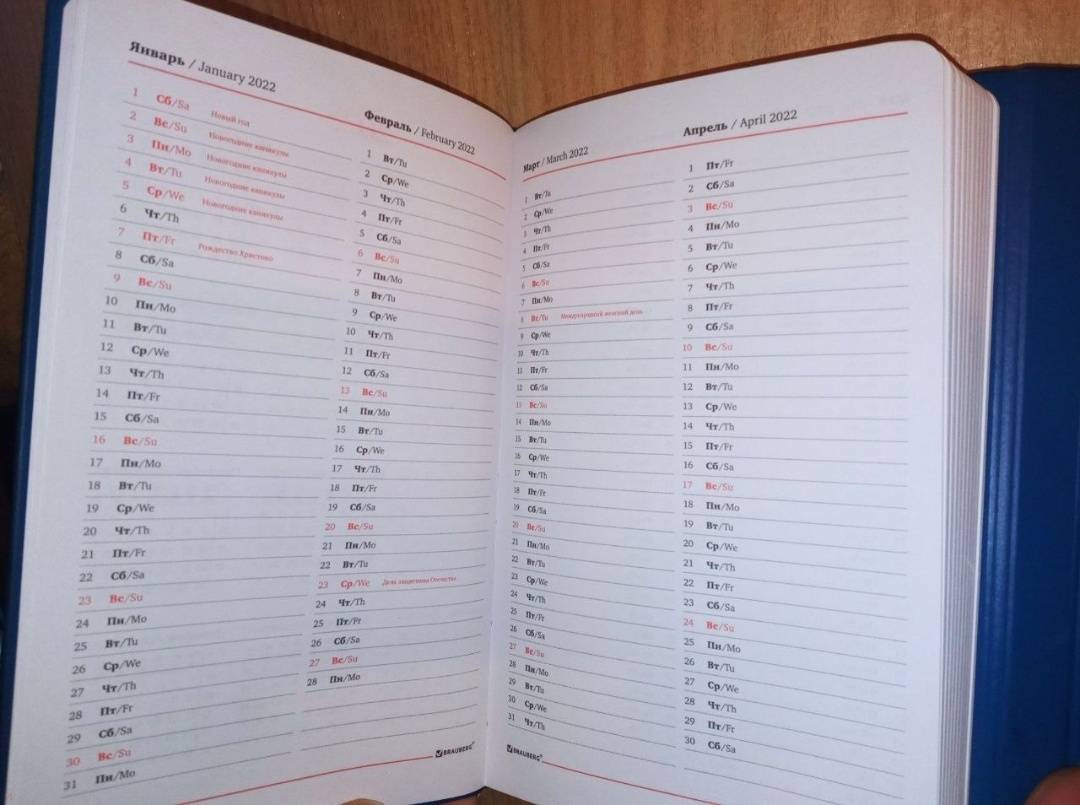 Январь / January 2022
1 Сб/Sa Новый год
2 Вс/Su Новогодние каникулы
3 Пн/Mo Новогодние каникулы
4 Вт/Tu Новогодние каникулы
5 Ср/We Новогодние каникулы
6 Чт/Th
7 Пт/Fr Рождество Христово
8 Сб/Sa
9 Вс/Su
10 Пн/Mo
11 Вт/Tu
12 Ср/We
13 Чт/Th
14 Пт/Fr
15 Сб/Sa
16 Вс/Su
17 Пн/Mo
18 Вт/Tu
19 Ср/We
20 Чт/Th
21 Пт/Fr
22 Сб/Sa
23 Вс/Su
24 Пн/Mo
25 Вт/Tu
26 Ср/We
27 Чт/Th
28 Пт/Fr
29 Сб/Sa
30 Вс/Su
31 Пн/Mo
Февраль / February 2022
1 Вт/Tu
2 Ср/We
3 Чт/Th
4 Пт/Fr
5 Сб/Sa
6 Вс/Su
7 Пн/Mo
8 Вт/Tu
9 Ср/We
10 Чт/Th
11 Пт/Fr
12 Сб/Sa
13 Вс/Su
14 Пн/Mo
15 Вт/Tu
16 Ср/We
17 Чт/Th
18 Пт/Fr
19 Сб/Sa
20 Вс/Su
21 Пн/Mo
22 Вт/Tu
23 Ср/We День защитника Отечества
24 Чт/Th
25 Пт/Fr
26 Сб/Sa
27 Вс/Su
28 Пн/Mo
BRAUBERG®
Март / March 2022
1 Вт/Tu
2 Ср/We
3 Чт/Th
4 Пт/Fr
5 Сб/Sa
6 Вс/Su
7 Пн/Mo
8 Вт/Tu Международный женский день
9 Ср/We
10 Чт/Th
11 Пт/Fr
12 Сб/Sa
13 Вс/Su
14 Пн/Mo
15 Вт/Tu
16 Ср/We
17 Чт/Th
18 Пт/Fr
19 Сб/Sa
20 Вс/Su
21 Пн/Mo
22 Вт/Tu
23 Ср/We
24 Чт/Th
25 Пт/Fr
26 Сб/Sa
27 Вс/Su
28 Пн/Mo
29 Вт/Tu
30 Ср/We
31 Чт/Th
BRAUBERG®
Апрель / April 2022
1 Пт/Fr
2 Сб/Sa
3 Вс/Su
4 Пн/Mo
5 Вт/Tu
6 Ср/We
7 Чт/Th
8 Пт/Fr
9 Сб/Sa
10 Вс/Su
11 Пн/Mo
12 Вт/Tu
13 Ср/We
14 Чт/Th
15 Пт/Fr
16 Сб/Sa
17 Вс/Su
18 Пн/Mo
19 Вт/Tu
20 Ср/We
21 Чт/Th
22 Пт/Fr
23 Сб/Sa
24 Вс/Su
25 Пн/Mo
26 Вт/Tu
27 Ср/We
28 Чт/Th
29 Пт/Fr
30 Сб/Sa